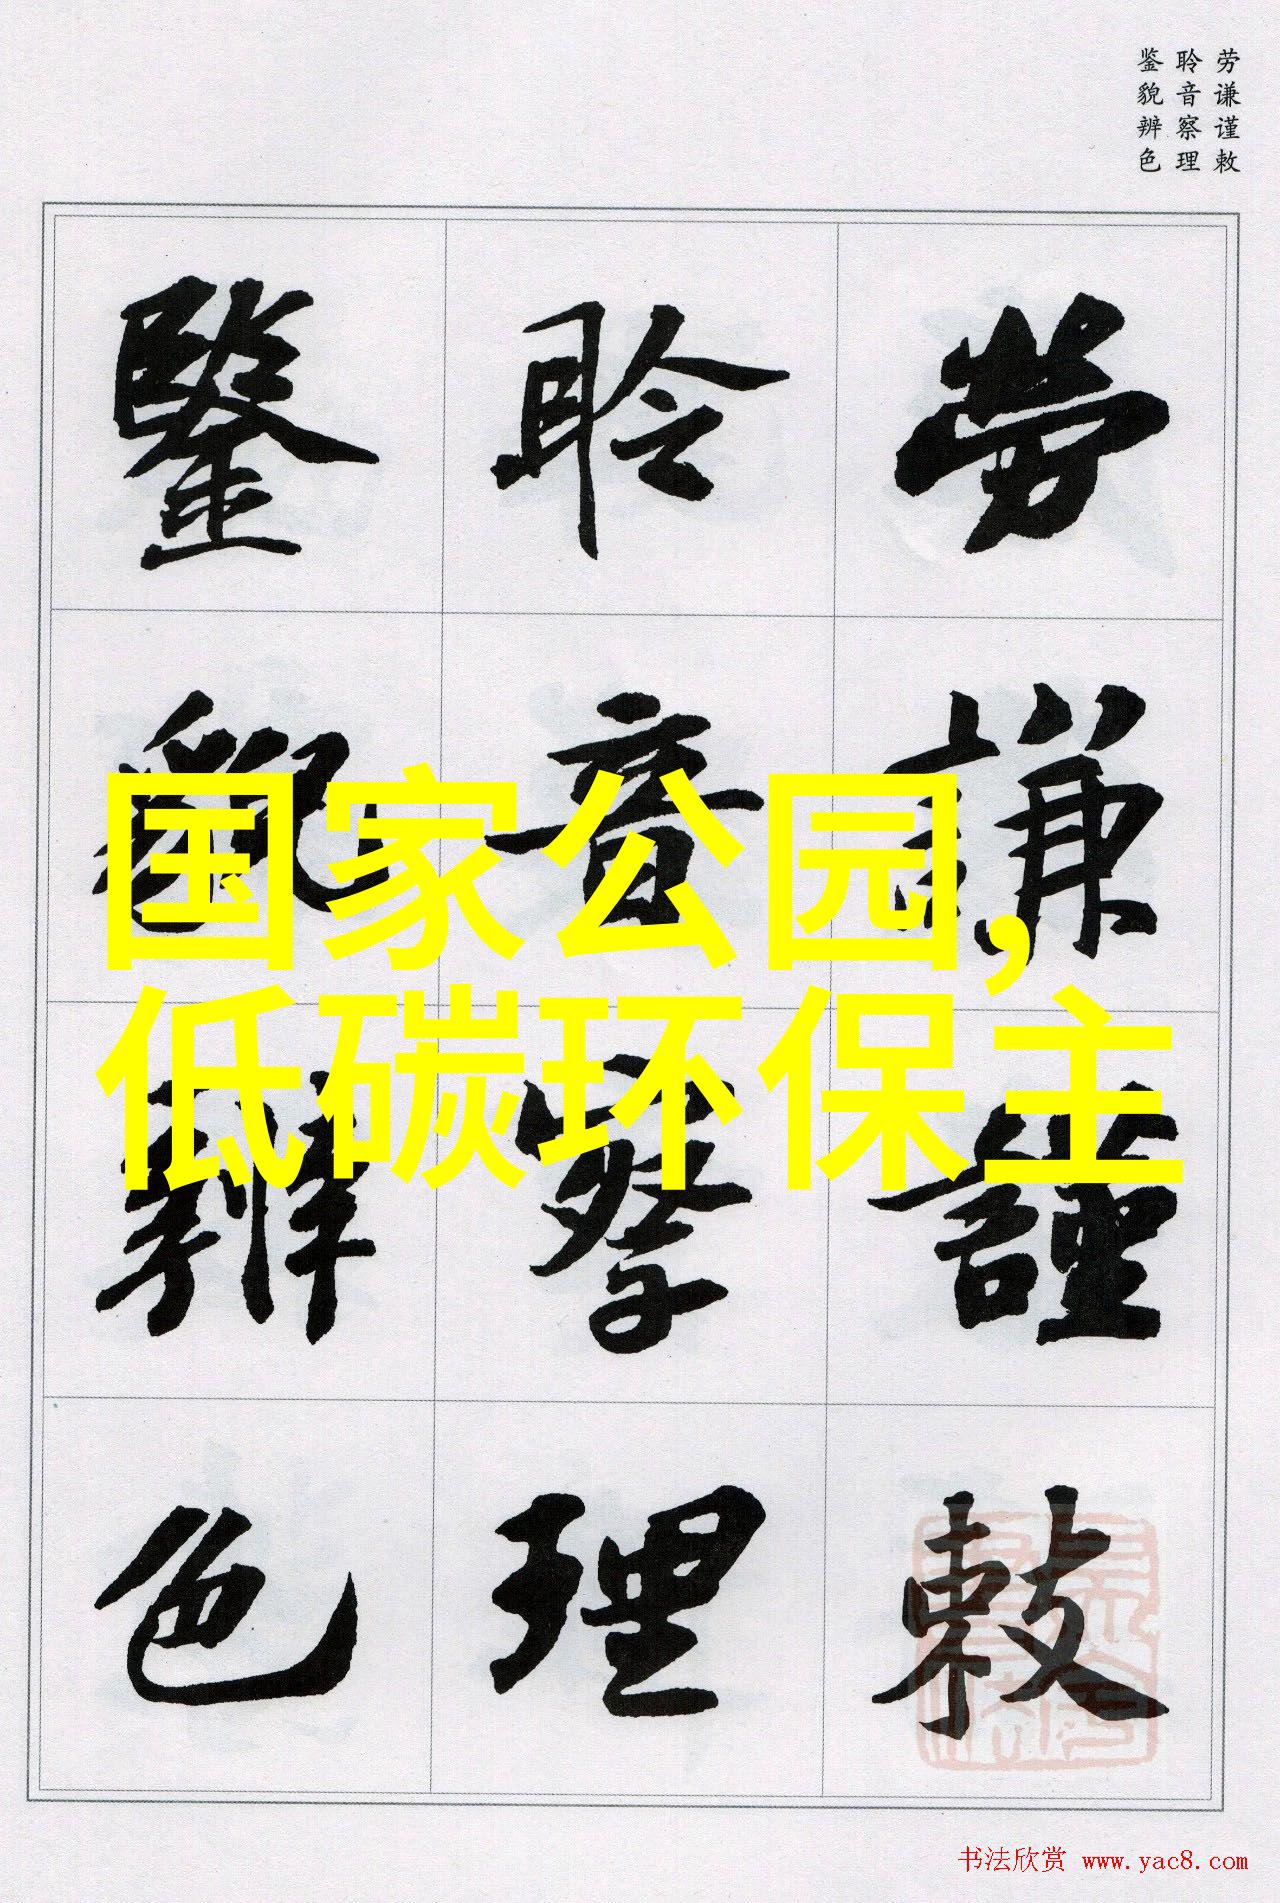 劳谦谨敕
聆音察理
鉴貌辨色
劳謙謹敕
聆音察理
鑒貌辨色
国家公园,
低碳环保主
书法欣赏 www.yac8.com